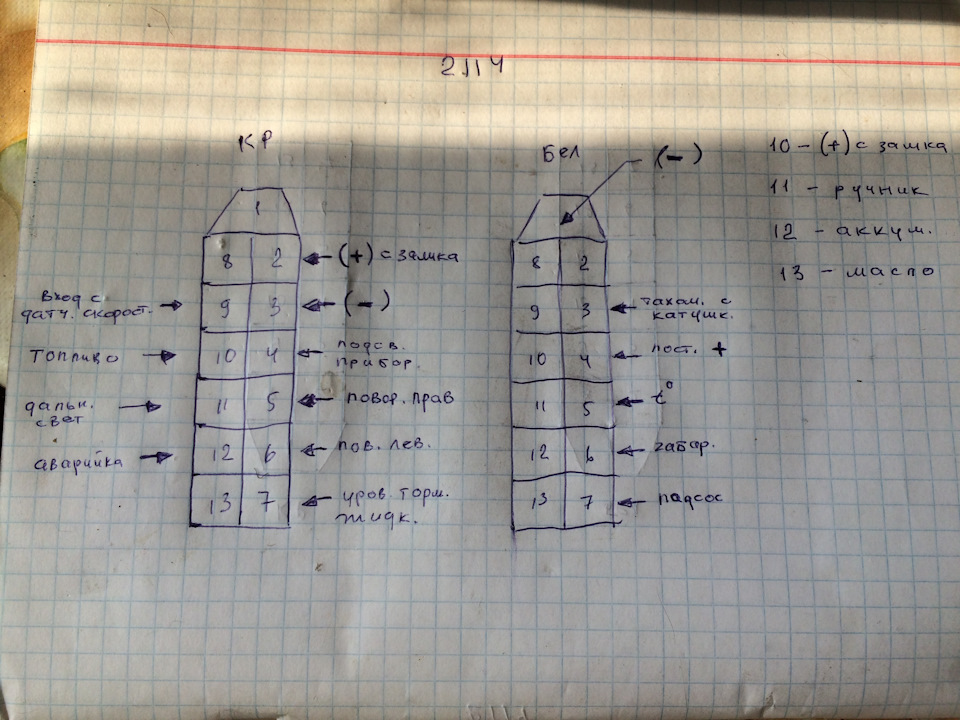 2114
КР
1
8 2
(+) с замка
Вход с
датч. скорост.
9 3
(-)
Топливо
10 4
подсв.
прибор.
дальн.
свет
11 5
повор. прав
аварийка
12 6
пов. лев.
13 7
уров. торм.
жидк.
Бел
(-)
8 2
9 3
тахом. с
катушк.
10 4
пост. +
11 5
t°
12 6
габар.
13 7
падсос
10 - (+) с замка
11 - ручник
12 - аккум.
13 - масло